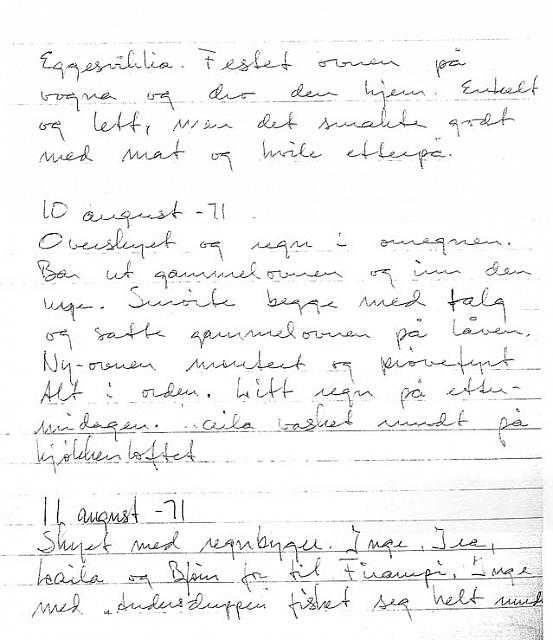 Eggesviklia. Festet ovnen på
vogna og dro den hjem. Enkelt
og lett, men det smakte godt
med mat og hvile etterpå.
10 august -71.
Overskyet og regn i omegnen.
Bar ut gammelovnen og inn den
nye. Smørte begge med talg
og satte gammelovnen på låven.
Ny-ovnen montert og prøvefyrt
Alt i orden. Litt regn på etter-
middagen. Laila vasket rundt på
kjøkkenloftet
11 august -71
Skyet med regnbyger. Inge, Ira,
Laila og Bjørn for til Inge
med fisket seg helt rundt